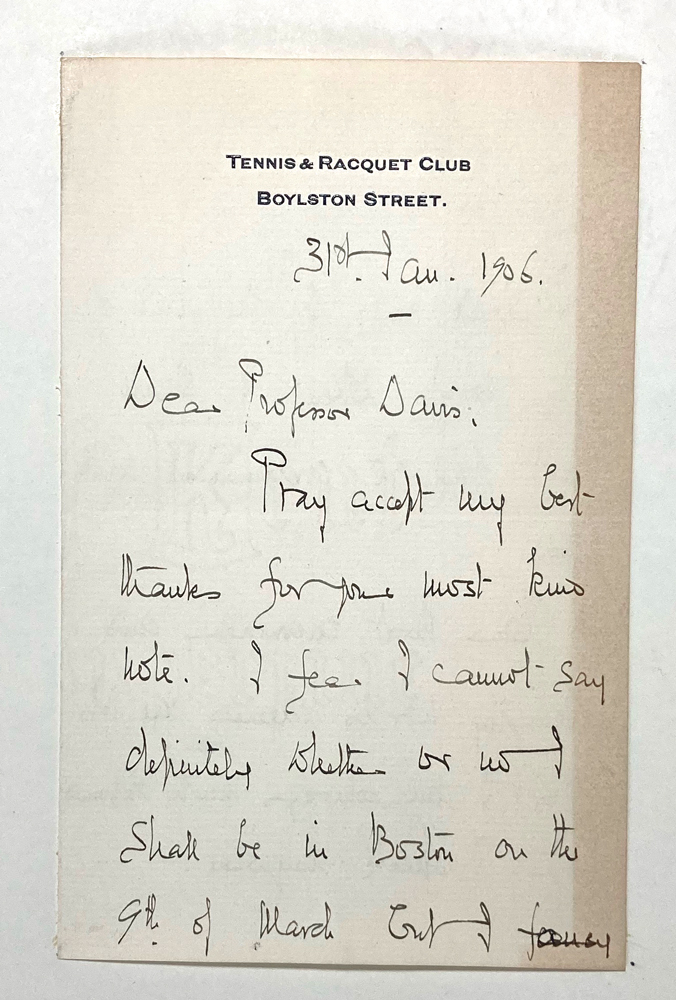 TENNIS & RACQUET CLUB
BOYLSTON STREET.
31st. Jan. 1906.
Dear Professor Davis,
Pray accept my best
thanks for your most kind
note. I fear I cannot say
definitely whether or no I
shall be in Boston on the
9th of March but I fancy